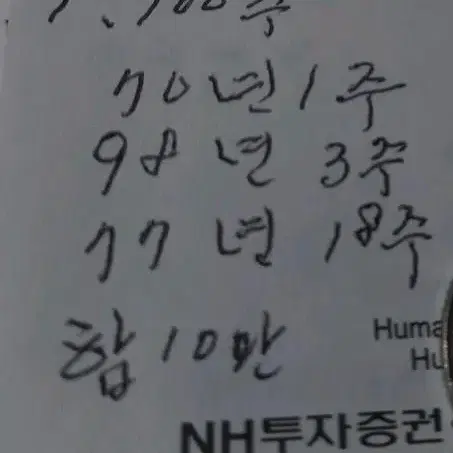 70년 1주
98년 3주
77년 18주
합 10만
Huma
Hu
NH투자증권